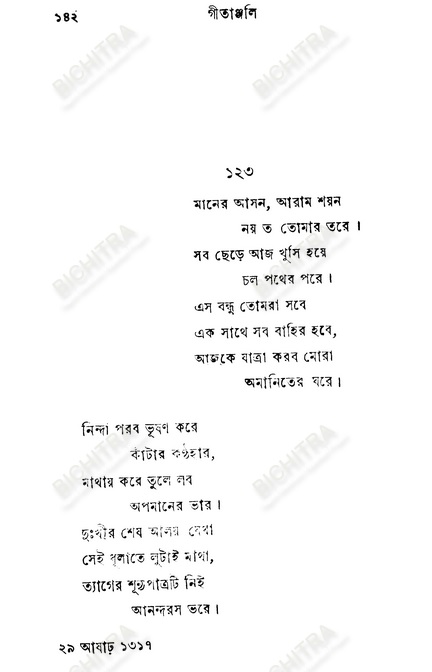 ১৪২
গীতাঞ্জলি
১২৩
মানের আসন, আরাম শয়ন
নয় ত তোমার তরে।
সব ছেড়ে আজ খুসি হয়ে
চল পথের পরে।
এস বন্ধু তোমরা সবে
এক সাথে সব বাহির হবে,
আজকে যাত্রা করব মোরা
অমানিতের ঘরে।
নিন্দা পরব ভূষণ করে
কাঁটার কণ্ঠহার,
মাথায় করে তুলে লব
অপমানের ভার।
দুঃখীর শেষ আলয় যেথা
সেই ধূলাতে লুটাই মাথা,
ত্যাগের শূন্যপাত্রটি নিই
আনন্দরস ভরে।
২৯ আষাঢ় ১৩১৭
BICHITRA
BICHITRA
BICHITRA
BICHITRA
BICHITRA
BICHITRA
BICHITRA
BICHITRA